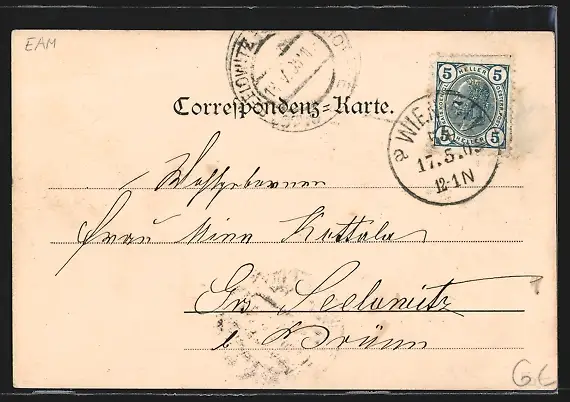 EAM
Correspondenz-Karte.
5 HELLER 5
5 HELLER 5
WIEN
17.5.0
12-1N
Wohlgeborenen
Frau Mina Kottala
Grs Seelowitz
b Brünn
GC